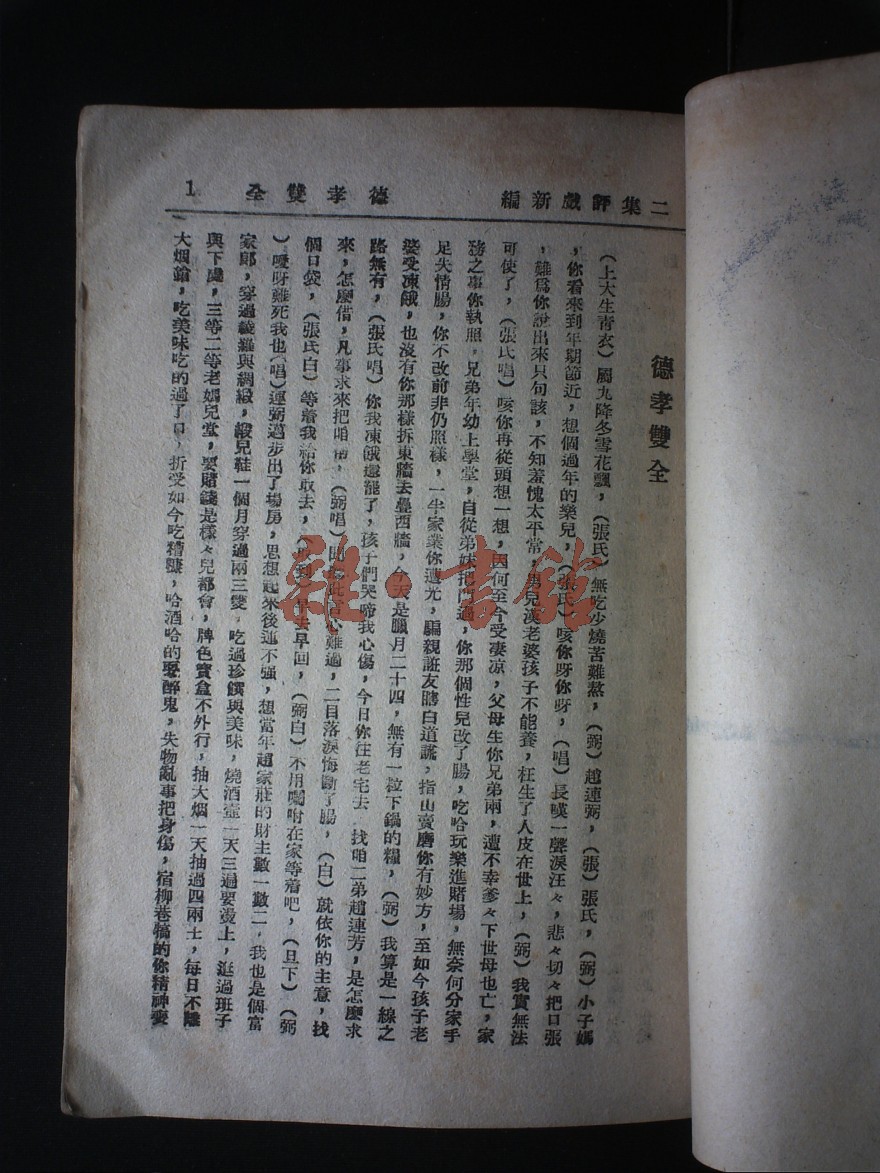 二集評戲新編 德孝雙全 1
德孝雙全
(上大生青衣)屬九降冬雪花飄,(張氏)無吃少燒苦難熬,(弼)趙連弼,(張)張氏,(弼)小子媽
,你看來到年期節近,想個過年的樂兒,(張氏)咳你呀你呀,(唱)長嘆一聲淚汪々,悲々切々把口張
,難爲你說出來只句該,不知羞愧太平常,男兒漢老婆孩子不能養,枉生了人皮在世上,(弼)我實無法
可使了,(張氏唱)咳你再從頭想一想,因何至今受凄凉,父母生你兄弟兩,遭不幸爹々下世母也亡,家
務之事你執照,兄弟年幼上學堂,自從弟妹把門過,你那個性兒改了腸,吃哈玩樂進賭場,無奈何分家手
足失情腸,你不改前非仍照樣,一半家業你遭光,騙親誑友瞎白道謊,指山賣磨你有妙方,至如今孩子老
婆受凍餓,也沒有你那樣拆東牆去壘西牆,今天是臘月二十四,無有一粒下鍋的糧,(弼)我算是一線之
路無有,(張氏唱)你我凍餓還罷了,孩子們哭啼我心傷,今日你往老宅去 找咱二弟趙連芳,是怎麼求
來,怎麼借,凡事求來把咱 ,(弼唱) 心難過,二目落淚悔斷了腸,(白)就依你的主意,找
個口袋,(張氏白)等着我給你取去,( 到)早去早回,(弼白)不用囑咐在家等着吧,(旦下)(弼
)嗳呀難死我也(唱)連弼邁步出了場房,思想起來後運不强,想當年趙家莊的財主數一數二,我也是個富
家郎,穿過綾羅與綢緞,緞兒鞋一個月穿過兩三雙,吃過珍饌與美味,燒酒壺一天三遍要燙上,逛過班子
與下處,三等二等老媽兒堂,要賭錢是樣々兒都會,牌色寶盒不外行,抽大烟一天抽過四兩土,每日不離
大烟鎗,吃美味吃的過了口,折受如今吃糟糠,哈酒哈的要醉鬼,失物亂事把身傷,宿柳巷犒的你精神耍
雜·書館